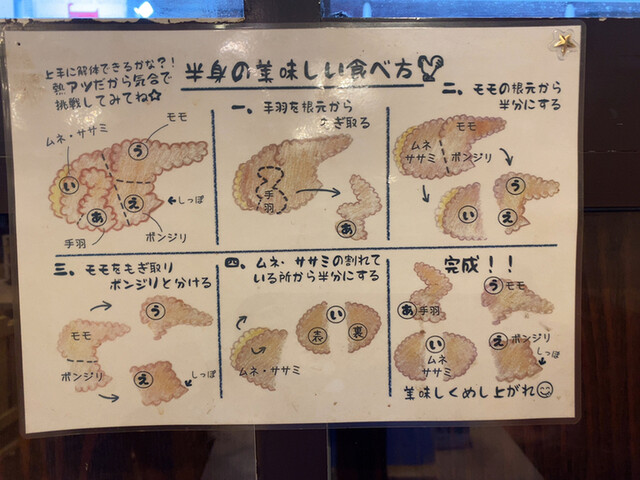 上手に解体できるかな？！
熱アツだから気合で
挑戦してみてね☆
半身の美味しい食べ方
ムネ・ササミ
モモ
い
う
あ
え
←しっぽ
手羽
ボンジリ
一、手羽を根元から
もぎ取る
手羽
あ
二、モモの根元から
半分にする
モモ
ムネ
ササミ
ボンジリ
い
う
え
三、モモをもぎ取り
ボンジリと分ける
モモ
ボンジリ
う
え
しっぽ
四、ムネ・ササミの割れて
いる所から半分にする
ムネ・ササミ
い
表
裏
完成！！
あ 手羽
う モモ
い
ムネ
ササミ
え ボンジリ
しっぽ
美味しくめし上がれ